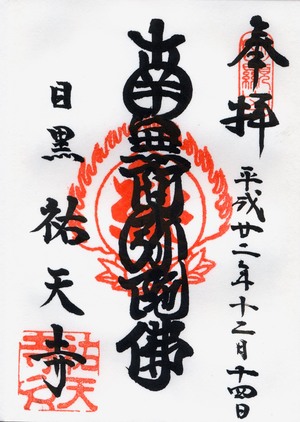 奉拝
平成廿二年十二月十四日
南無阿弥陀佛
目黒
祐天寺